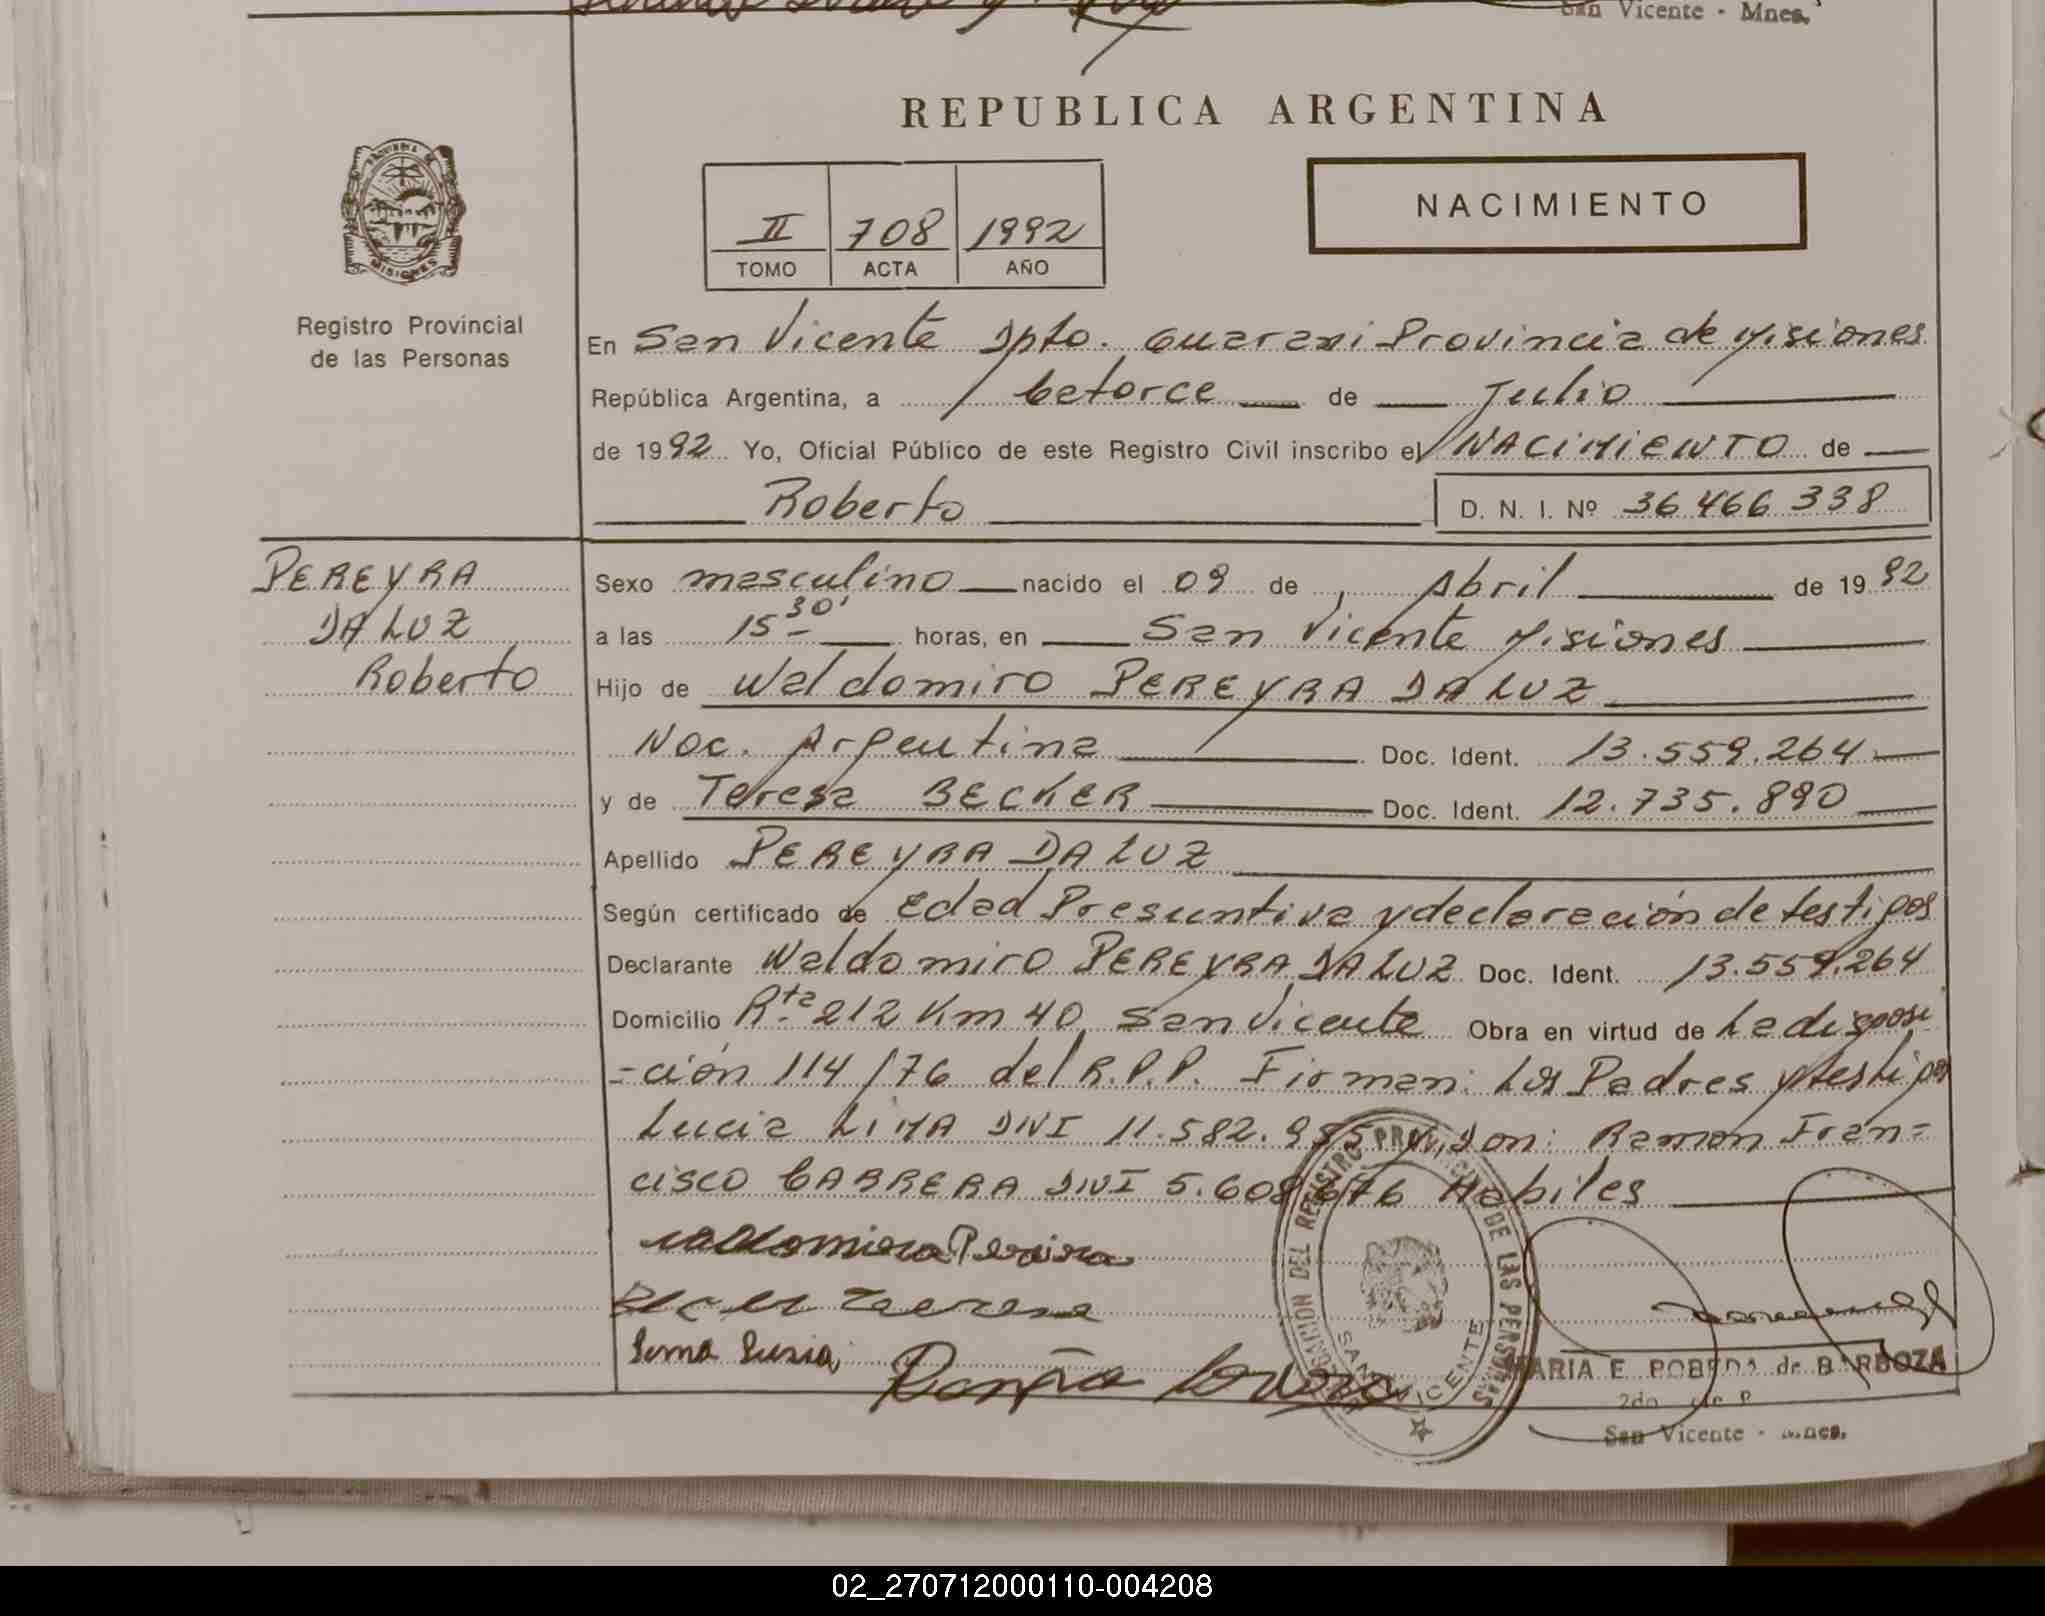 San Vicente - Mnes.
REPUBLICA ARGENTINA
NACIMIENTO
II 708 1992
TOMO ACTA AÑO
PROVINCIA DE
MISIONES
Registro Provincial
de las Personas
En San Vicente Dpto. Guarani Provincia de Misiones
República Argentina, a Catorce de Julio
de 1992 Yo, Oficial Público de este Registro Civil inscribo el NACIMIENTO de
Roberto D. N. I. Nº 36 466 338
PEREYRA
DA LUZ
Roberto
Sexo masculino nacido el 09 de Abril de 1992
a las 15 30' horas, en San Vicente Misiones
Hijo de Waldomiro PEREYRA DA LUZ
Nac. Argentina Doc. Ident. 13.559.264
y de Teresa BECKER Doc. Ident. 12.735.890
Apellido PEREYRA DA LUZ
Según certificado de Edad Presuntiva y declaración de testigos
Declarante Waldomiro PEREYRA DA LUZ Doc. Ident. 13.559.264
Domicilio Rta 212 Km 40 San Vicente Obra en virtud de La disposi
=ción 114/76 del R.P.P. Firman: Los Padres y testigos
Lucia LIMA DNI 11.582.955 y Don: Ramon Fran=
cisco CABRERA DNI 5.608.676 Habiles
Waldomiro Pereira
Becker Teresa
Lima Lusia
DEL REGISTRO PROVINCIAL DE LAS PERSONAS
SAN VICENTE
MARIA E. ROBEDA de BARBOZA
San Vicente - Mnes.
02_270712000110-004208